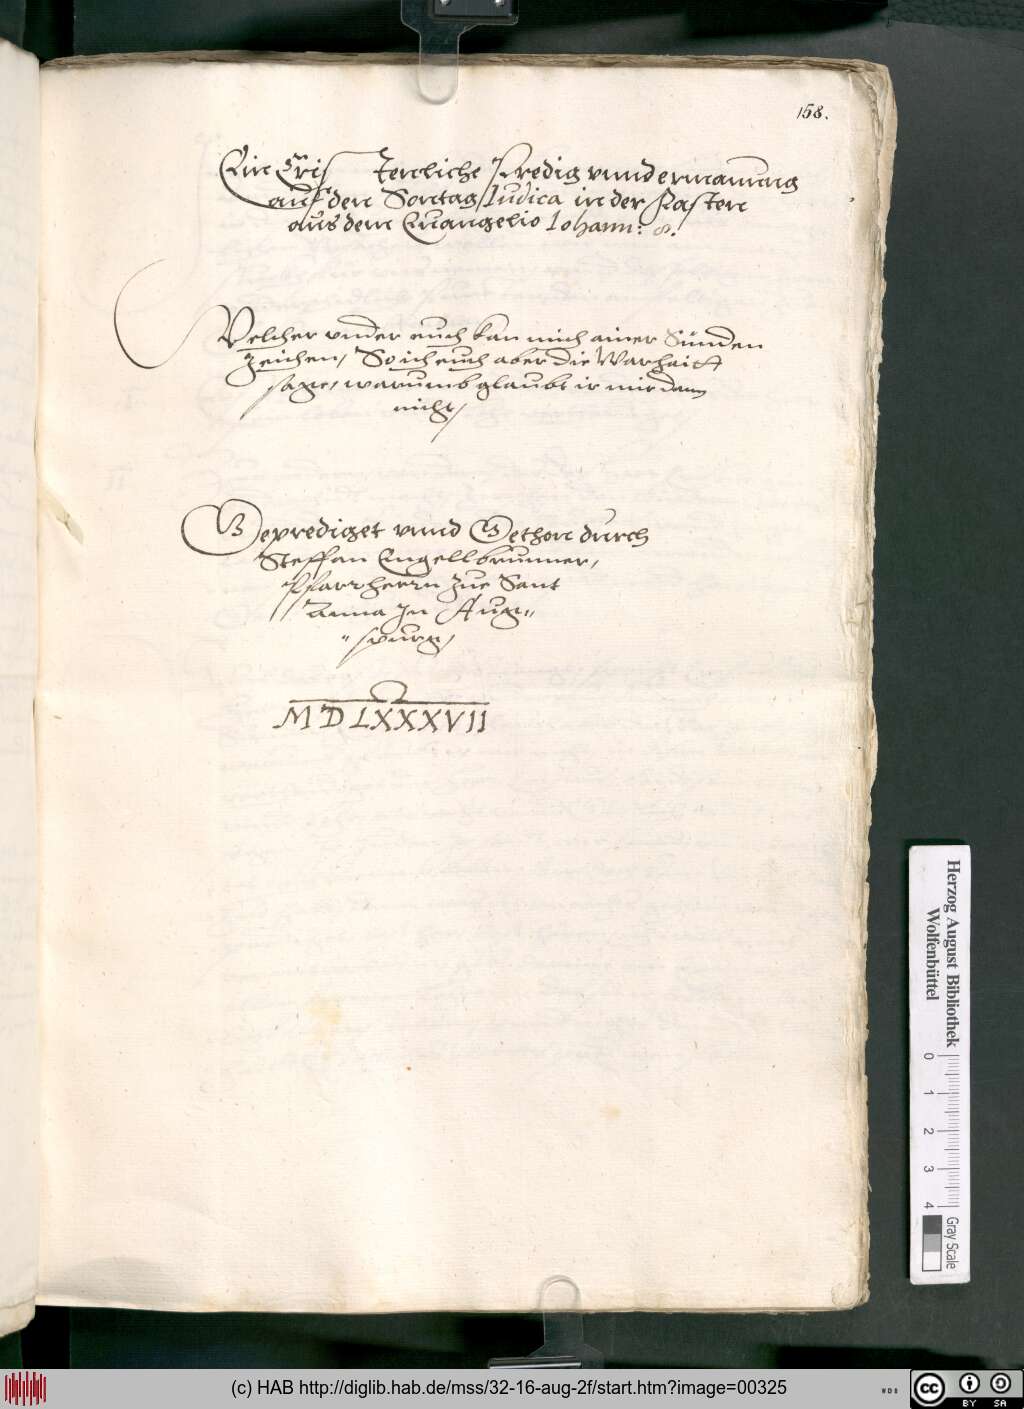 158.
Ein Cris tenliche Predig vnnd ermanung
auf den Sontag Iudica in der Fasten
aus dem Euangelio Iohann: 8.
Welcher vnder euch kan mich ainer Sünden
zeichen, So ich euch aber die Warhaitt
sage, warumb glaubt ir mir dann
nicht,
Geprediget vnnd Gethon durch
Steffan Engellbrunner,
Pfarrherrn zue Sant
Anna Jn Aug=
=spurg,
MDLXXXVII
Herzog August Bibliothek
Wolfenbüttel
0 1 2 3 4
Gray Scale
(c) HAB http://diglib.hab.de/mss/32-16-aug-2f/start.htm?image=00325
WDB
cc BY SA